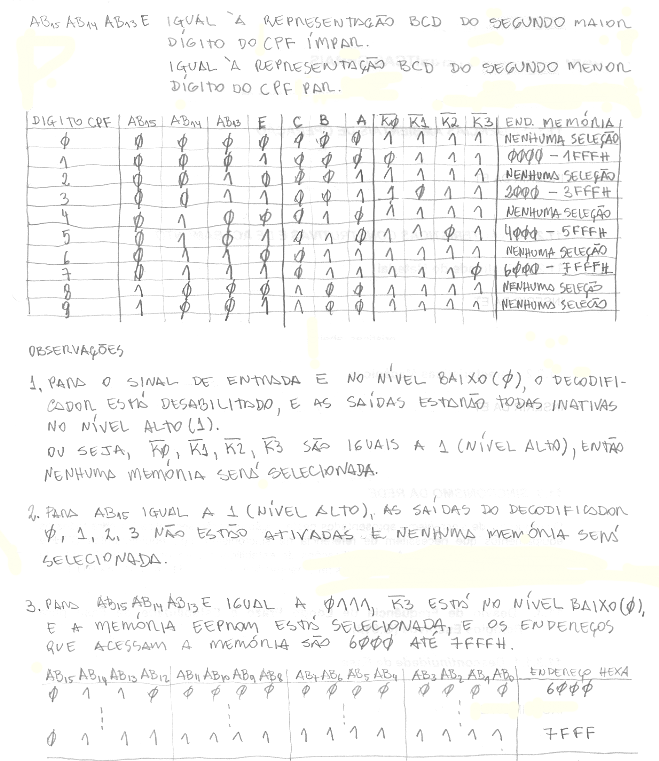 AB15 AB14 AB13 E IGUAL À REPRESENTAÇÃO BCD DO SEGUNDO MAIOR
DÍGITO DO CPF ÍMPAR.
IGUAL À REPRESENTAÇÃO BCD DO SEGUNDO MENOR
DÍGITO DO CPF PAR.
DIGITO CPF AB15 AB14 AB13 E C B A K̅Ø K̅1 K̅2 K̅3 END. MEMÓRIA
Ø Ø Ø Ø Ø Ø Ø Ø 1 1 1 1 NENHUMA SELEÇÃO
1 Ø Ø Ø 1 Ø Ø Ø Ø 1 1 1 ØØØØ - 1FFFH
2 Ø Ø 1 Ø Ø Ø 1 1 1 1 1 NENHUMA SELEÇÃO
3 Ø Ø 1 1 Ø Ø 1 1 Ø 1 1 2ØØØ - 3FFFH
4 Ø 1 Ø Ø Ø 1 Ø 1 1 1 1 NENHUMA SELEÇÃO
5 Ø 1 Ø 1 Ø 1 Ø 1 1 Ø 1 4ØØØ - 5FFFH
6 Ø 1 1 Ø Ø 1 1 1 1 1 1 NENHUMA SELEÇÃO
7 Ø 1 1 1 Ø 1 1 1 1 1 Ø 6ØØØ - 7FFFH
8 1 Ø Ø Ø 1 Ø Ø 1 1 1 1 NENHUMA SELEÇÃO
9 1 Ø Ø 1 1 Ø Ø 1 1 1 1 NENHUMA SELEÇÃO
OBSERVAÇÕES
1. PARA O SINAL DE ENTRADA E NO NÍVEL BAIXO (Ø), O DECODIFI-
CADOR ESTÁ DESABILITADO, E AS SAÍDAS ESTARÃO TODAS INATIVAS
NO NÍVEL ALTO (1).
OU SEJA, K̅Ø, K̅1, K̅2, K̅3 SÃO IGUAIS A 1 (NÍVEL ALTO), ENTÃO
NENHUMA MEMÓRIA SERÁ SELECIONADA.
2. PARA AB15 IGUAL A 1 (NÍVEL ALTO), AS SAÍDAS DO DECODIFICADOR
Ø, 1, 2, 3 NÃO ESTÃO ATIVADAS E NENHUMA MEMÓRIA SERÁ
SELECIONADA.
3. PARA AB15 AB14 AB13 E IGUAL A Ø111, K̅3 ESTÁ NO NÍVEL BAIXO (Ø),
E A MEMÓRIA EEPROM ESTÁ SELECIONADA, E OS ENDEREÇOS
QUE ACESSAM A MEMÓRIA SÃO 6ØØØ ATÉ 7FFFH.
AB15 AB14 AB13 AB12 AB11 AB10 AB9 AB8 AB7 AB6 AB5 AB4 AB3 AB2 AB1 AB0 ENDEREÇO HEXA
Ø 1 1 Ø Ø Ø Ø Ø Ø Ø Ø Ø Ø Ø Ø Ø 6ØØØ
Ø 1 1 1 1 1 1 1 1 1 1 1 1 1 1 1 7FFF